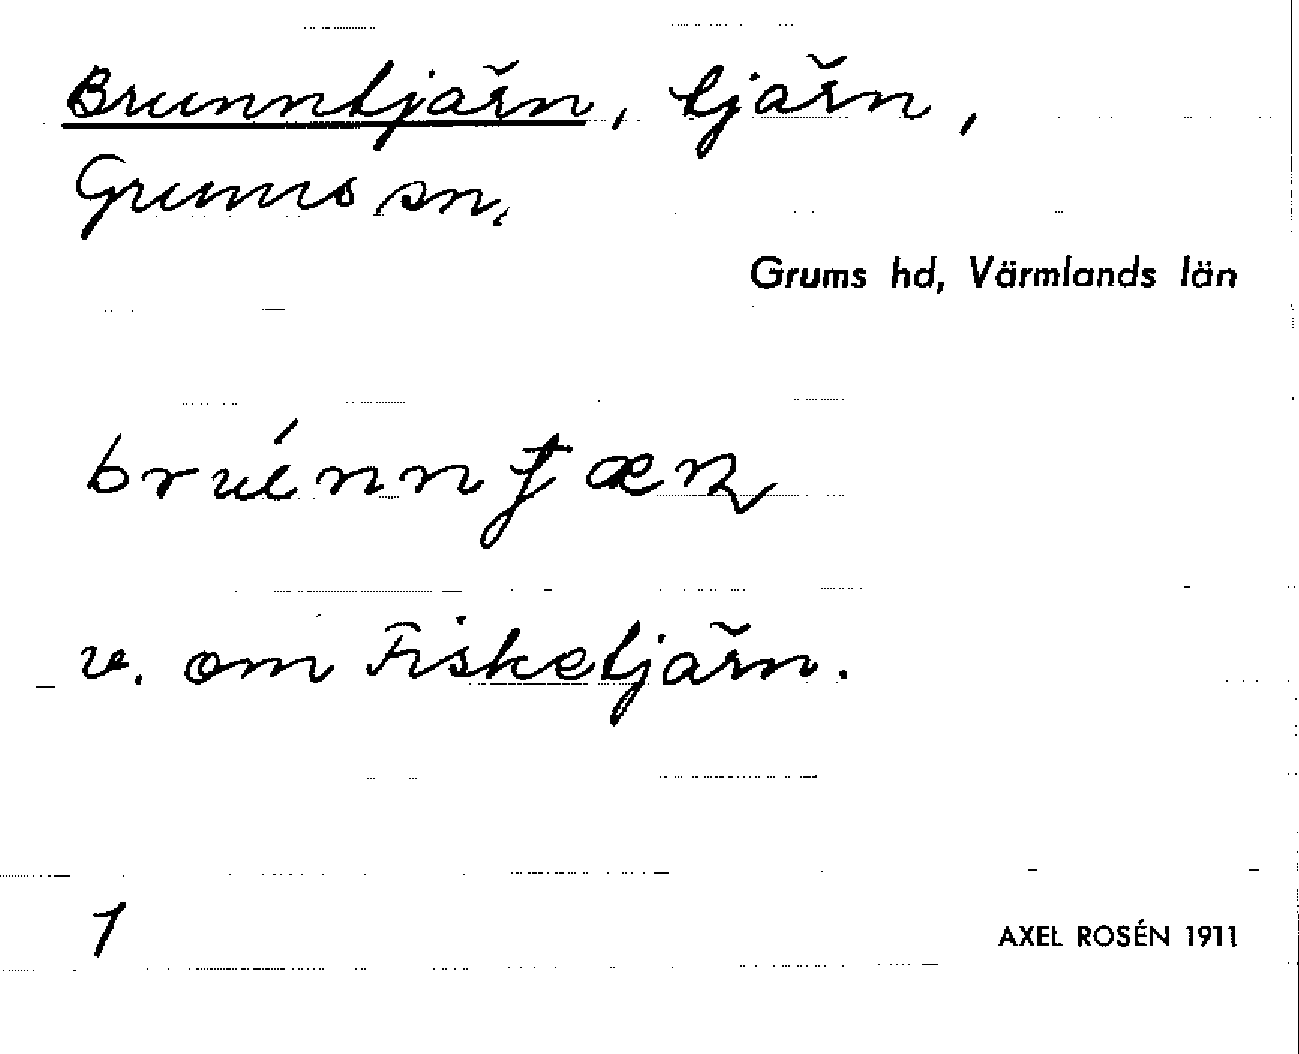 Brunntjärn, tjärn,
Grums sn.
Grums hd, Värmlands län
v. om Fisketjärn.
1
AXEL ROSÉN 1911